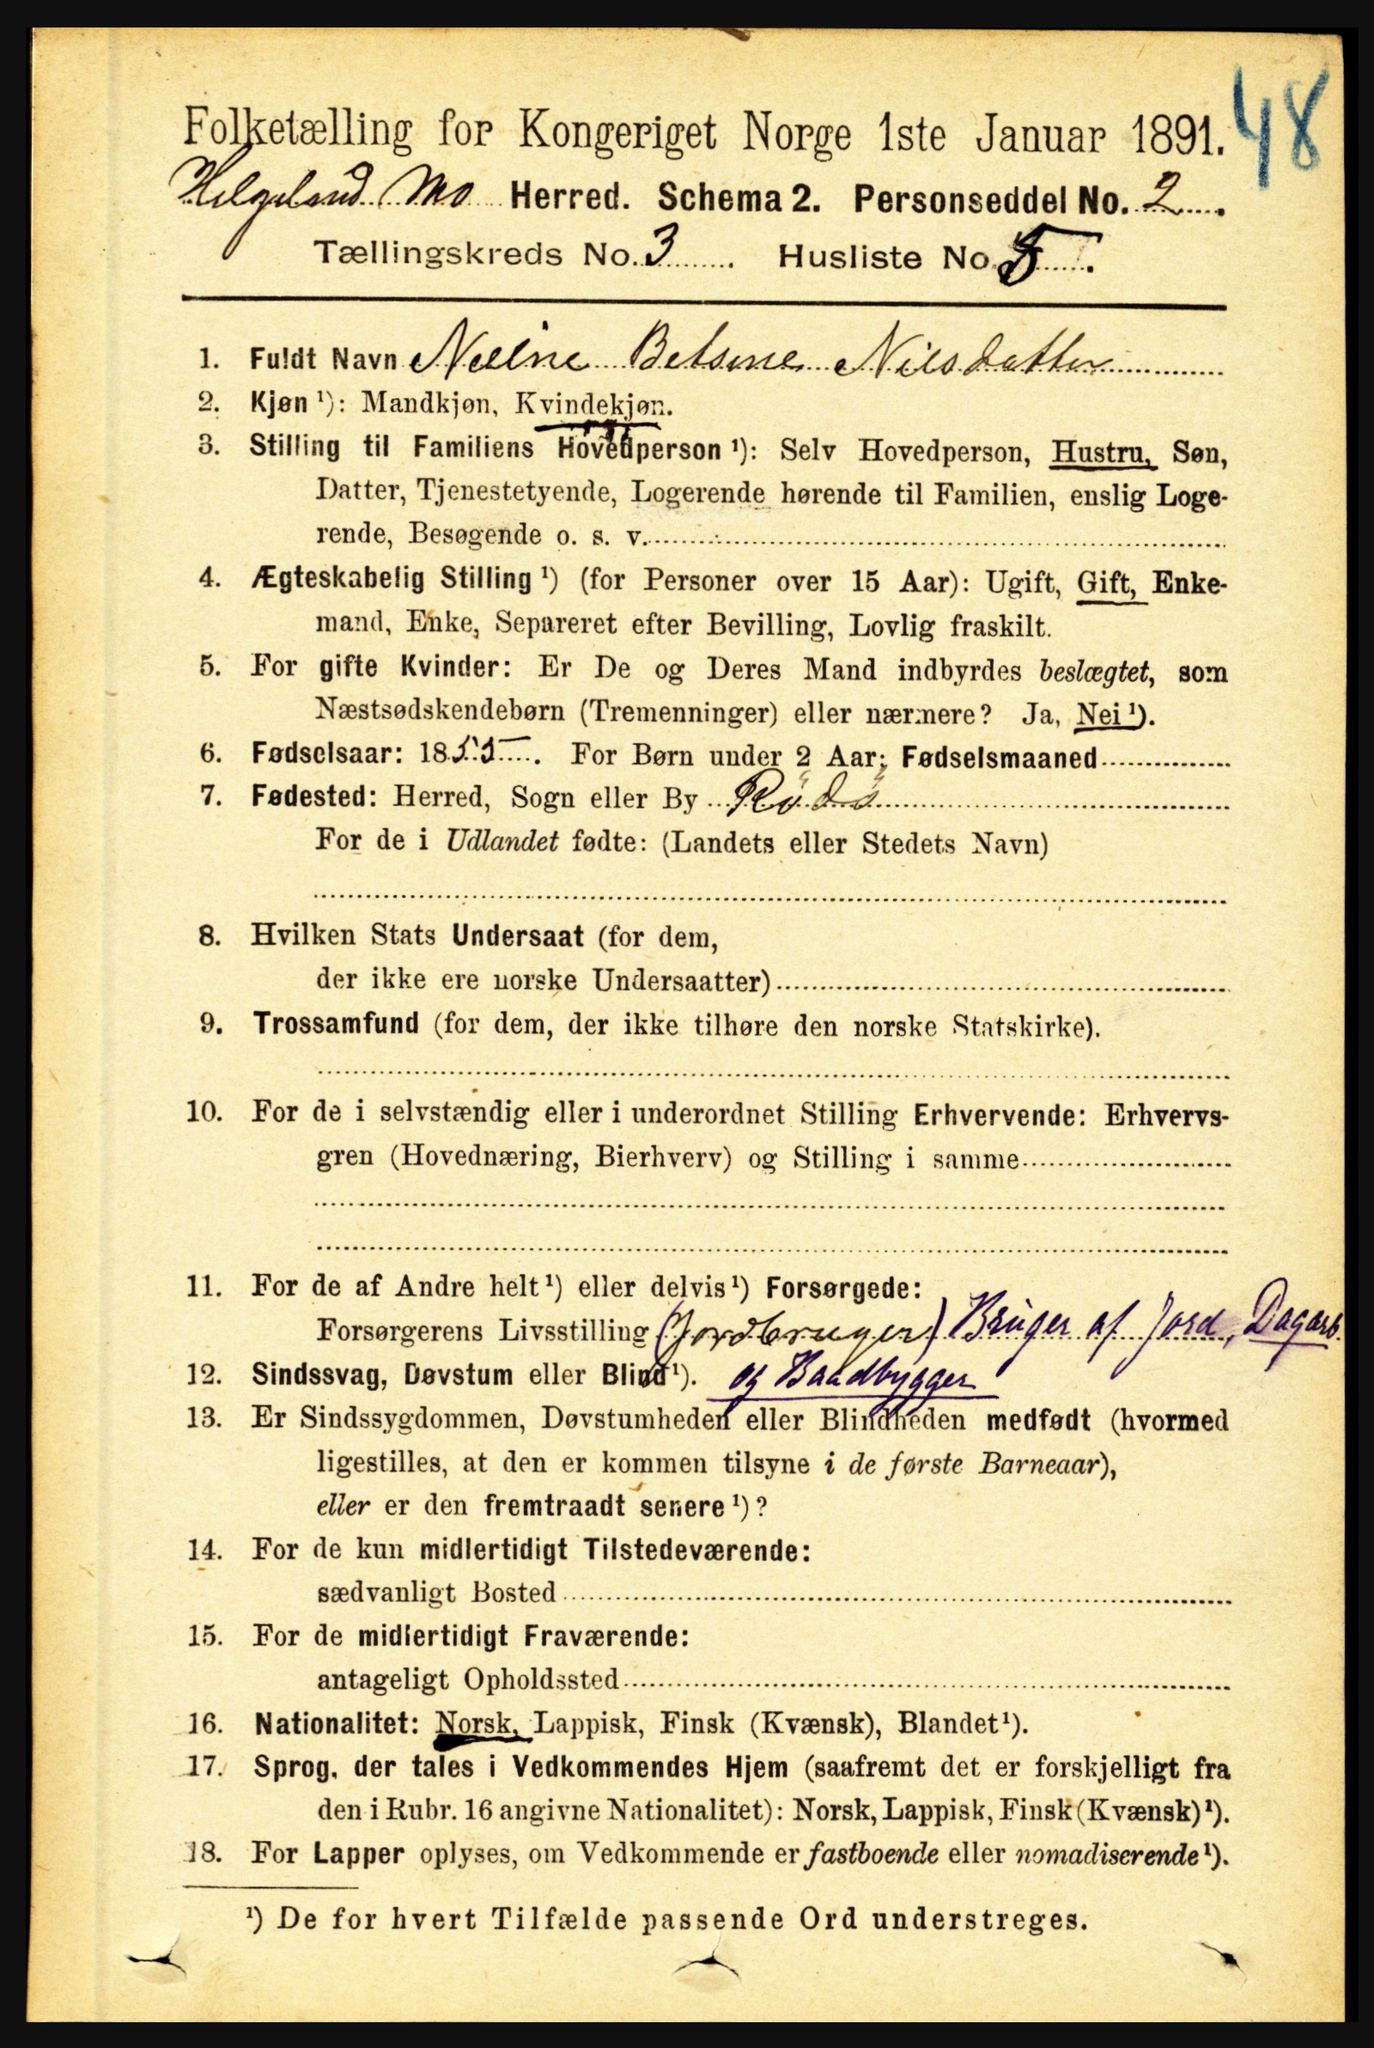 48
Folketælling for Kongeriget Norge 1ste Januar 1891.
Helgeland Mo Herred. Schema 2. Personseddel No. 2.
Tællingskreds No. 3. Husliste No. 5.
1. Fuldt Navn Neeine Betsine Nilsdatter
2. Kjøn ¹): Mandkjøn, Kvindekjøn.
3. Stilling til Familiens Hovedperson ¹): Selv Hovedperson, Hustru, Søn,
Datter, Tjenestetyende, Logerende hørende til Familien, enslig Loge-
rende, Besøgende o. s. v.
4. Ægteskabelig Stilling ¹) (for Personer over 15 Aar): Ugift, Gift, Enke-
mand, Enke, Separeret efter Bevilling, Lovlig fraskilt.
5. For gifte Kvinder: Er De og Deres Mand indbyrdes beslægtet, som
Næstsødskendebørn (Tremenninger) eller nærmere? Ja, Nei ¹).
6. Fødselsaar: 1855. For Børn under 2 Aar: Fødselsmaaned
7. Fødested: Herred, Sogn eller By Rödö
For de i Udlandet fødte: (Landets eller Stedets Navn)
8. Hvilken Stats Undersaat (for dem,
der ikke ere norske Undersaatter)
9. Trossamfund (for dem, der ikke tilhøre den norske Statskirke).
10. For de i selvstændig eller i underordnet Stilling Erhvervende: Erhvervs-
gren (Hovednæring, Bierhverv) og Stilling i samme
11. For de af Andre helt ¹) eller delvis ¹) Forsørgede:
Forsørgerens Livsstilling (Jordbruger) Bruger af Jord, Dagarb.
12. Sindssvag, Døvstum eller Blind ¹). og Baadbygger
13. Er Sindssygdommen, Døvstumheden eller Blindheden medfødt (hvormed
ligestilles, at den er kommen tilsyne i de første Barneaar),
eller er den fremtraadt senere ¹)?
14. For de kun midlertidigt Tilstedeværende:
sædvanligt Bosted
15. For de midlertidigt Fraværende:
antageligt Opholdssted
16. Nationalitet: Norsk, Lappisk, Finsk (Kvænsk), Blandet ¹).
17. Sprog, der tales i Vedkommendes Hjem (saafremt det er forskjelligt fra
den i Rubr. 16 angivne Nationalitet): Norsk, Lappisk, Finsk (Kvænsk) ¹).
18. For Lapper oplyses, om Vedkommende er fastboende eller nomadiserende ¹).
¹) De for hvert Tilfælde passende Ord understreges.